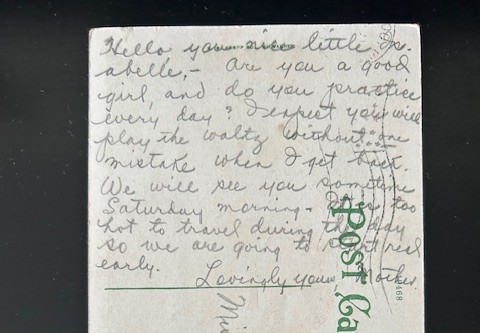 Hello you nice little
abelle,- Are you a good
girl, and do you practice
every day? I expect you will
play the waltz without one
mistake when I get back.
We will see you sometime
Saturday morning - It is too
hot to travel during the day
so we are going to start real
early.
Lovingly yours Mother
POST CA
468